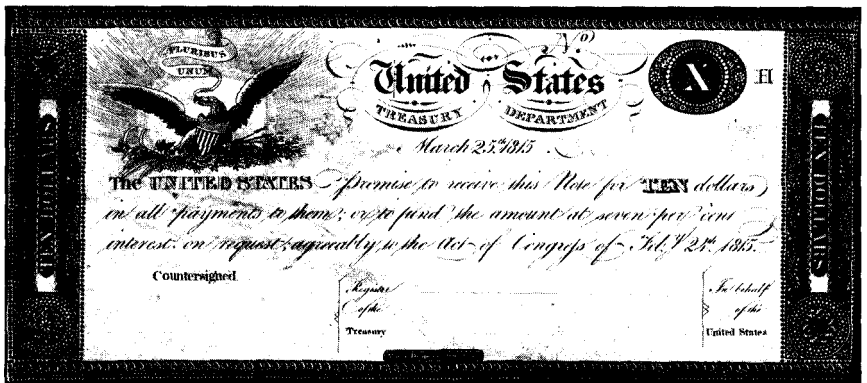 PLURIBUS
UNUM
No
X
H
United States
TREASURY DEPARTMENT
March 25th 1815
The UNITED STATES Promise to receive this Note for TEN dollars
in all payments to them; or to fund the amount at seven per cent
interest, on request, agreeably to the Act of Congress of Feby 24th 1815.
Countersigned
Register
of the
Treasury
In behalf
of the
United States
TEN DOLLARS
TEN DOLLARS